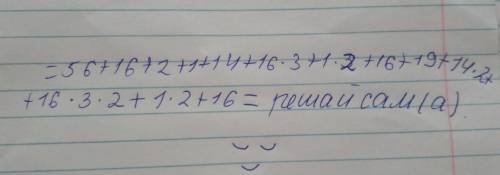 =56+16+2+1+14+16·3+1·2+16+19+14·2+
+16·3·2+1·2+16= решай сам(а)